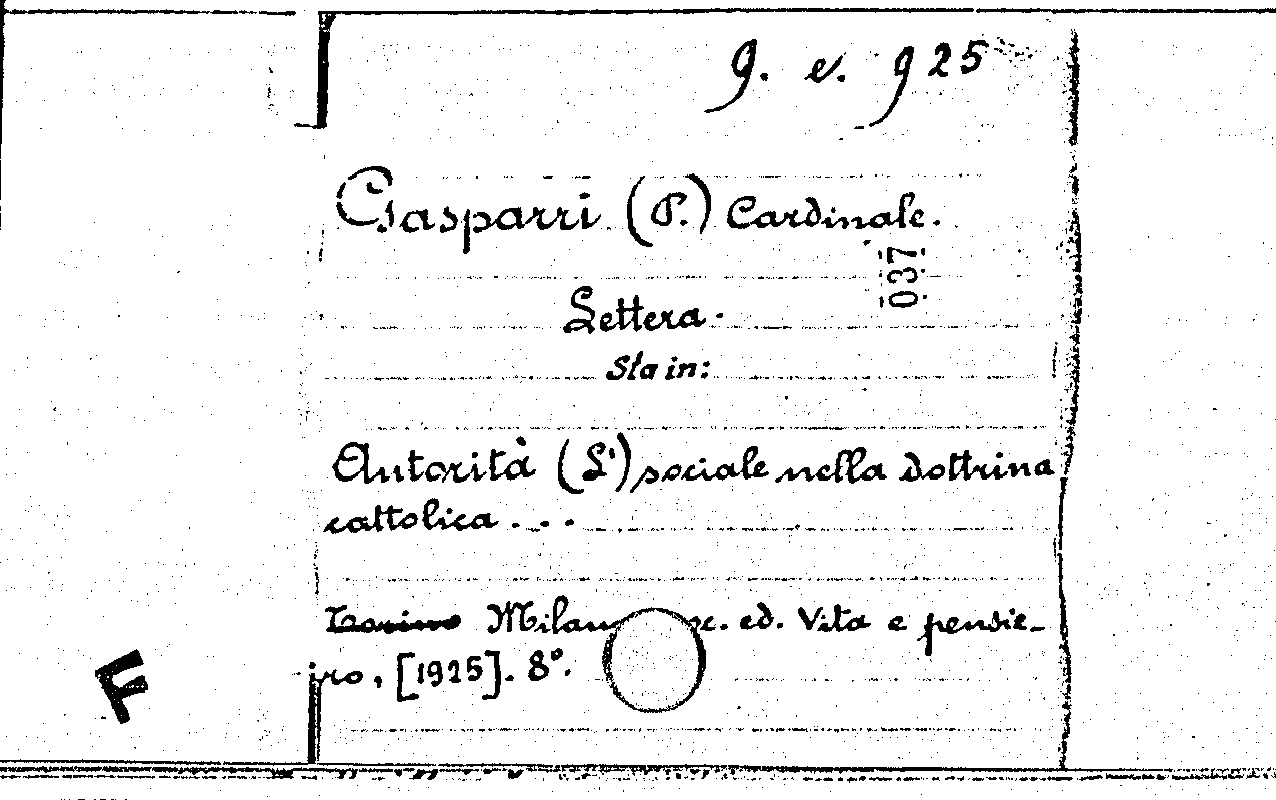 9. e. 925
Gasparri (P.) Cardinale.
037
Lettera.
Sta in:
Autorità (L') sociale nella dottrina
cattolica . . .
Torino Milano ed. Vita e pensie-
ro, [1925]. 8°.
F